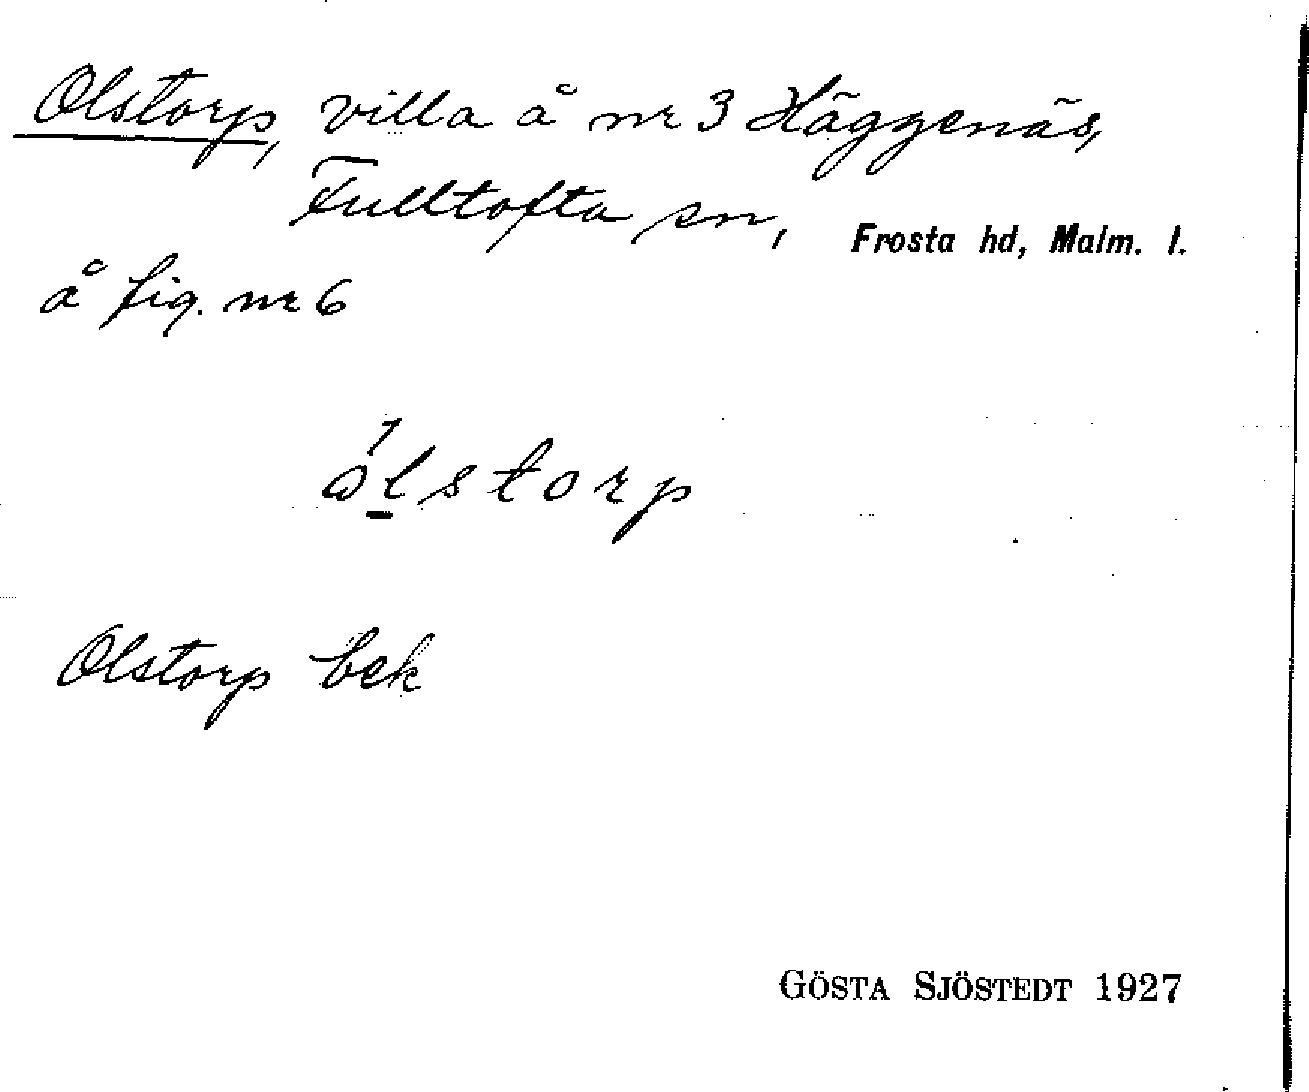 Olstorp, villa å nr 3 Häggenäs,
Fulltofta sn, Frosta hd, Malm. l.
å fig. nr 6
ώlstorp
Olstorp bek
GÖSTA SJÖSTEDT 1927